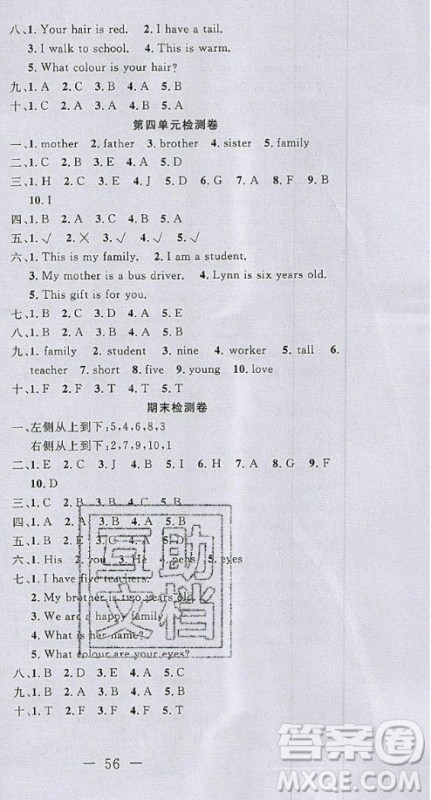 八、1. Your hair is red.  2. I have a tail.
3. I walk to school.  4. This is warm.
5. What colour is your hair?
九、1. A  2. C  3. B  4. A  5. A
十、1. A  2. C  3. B  4. C  5. B
第四单元检测卷
一、1. mother  2. father  3. brother  4. sister  5. family
二、1. C  2. D  3. B  4. E  5. A
三、1. H  2. C  3. D  4. E  5. J  6. G  7. A  8. F  9. B
10. I
四、1. B  2. C  3. B  4. A  5. A
五、1. √  2. ×  3. √  4. √  5. √
六、1. This is my family.  2. I am a student.
3. My mother is a bus driver.  4. Lynn is six years old.
5. This gift is for you.
七、1. B  2. C  3. A  4. B  5. C
八、1. B  2. A  3. A  4. B  5. A
九、1. family  2. student  3. nine  4. worker  5. tall  6.
teacher  7. short  8. five  9. young  10. love
十、1. C  2. F  3. B  4. A  5. D
期末检测卷
一、左侧从上到下:5,4,6,8,3
右侧从上到下:2,7,9,10,1
二、1. E  2. C  3. J  4. I  5. B  6. A  7. G  8. H  9. F
10. D
三、1. C  2. B  3. A  4. B  5. C
四、1. A  2. A  3. B  4. A  5. B
五、1.
六、1. His  2. you  3.  4. pens  5. eyes
七、1. I have five teachers.
2. My brother is two years old.
3. We are a happy family.
4. What is her name?
5. What colour are your eyes?
八、1. B  2. D  3. E  4. A  5. C
九、1. B  2. B  3. A  4. A  5. B
十、1. B  2. A  3. B  4. A  5. C
— 56 —
互助
文档
答案圈
MXQE.COM